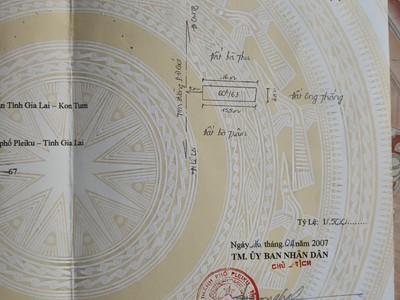 Đất bà Thu
16m
60m/63
15,5m
Đất ông Thắng
Đất bà Tuân
an Tỉnh Gia Lai – Kon Tum
phố Pleiku – Tỉnh Gia Lai
67
Tỷ Lệ: 1/500
Ngày tháng 04 năm 2007
TM. ỦY BAN NHÂN DÂN
CHỦ TỊCH
THÀNH PHỐ PLEIKU